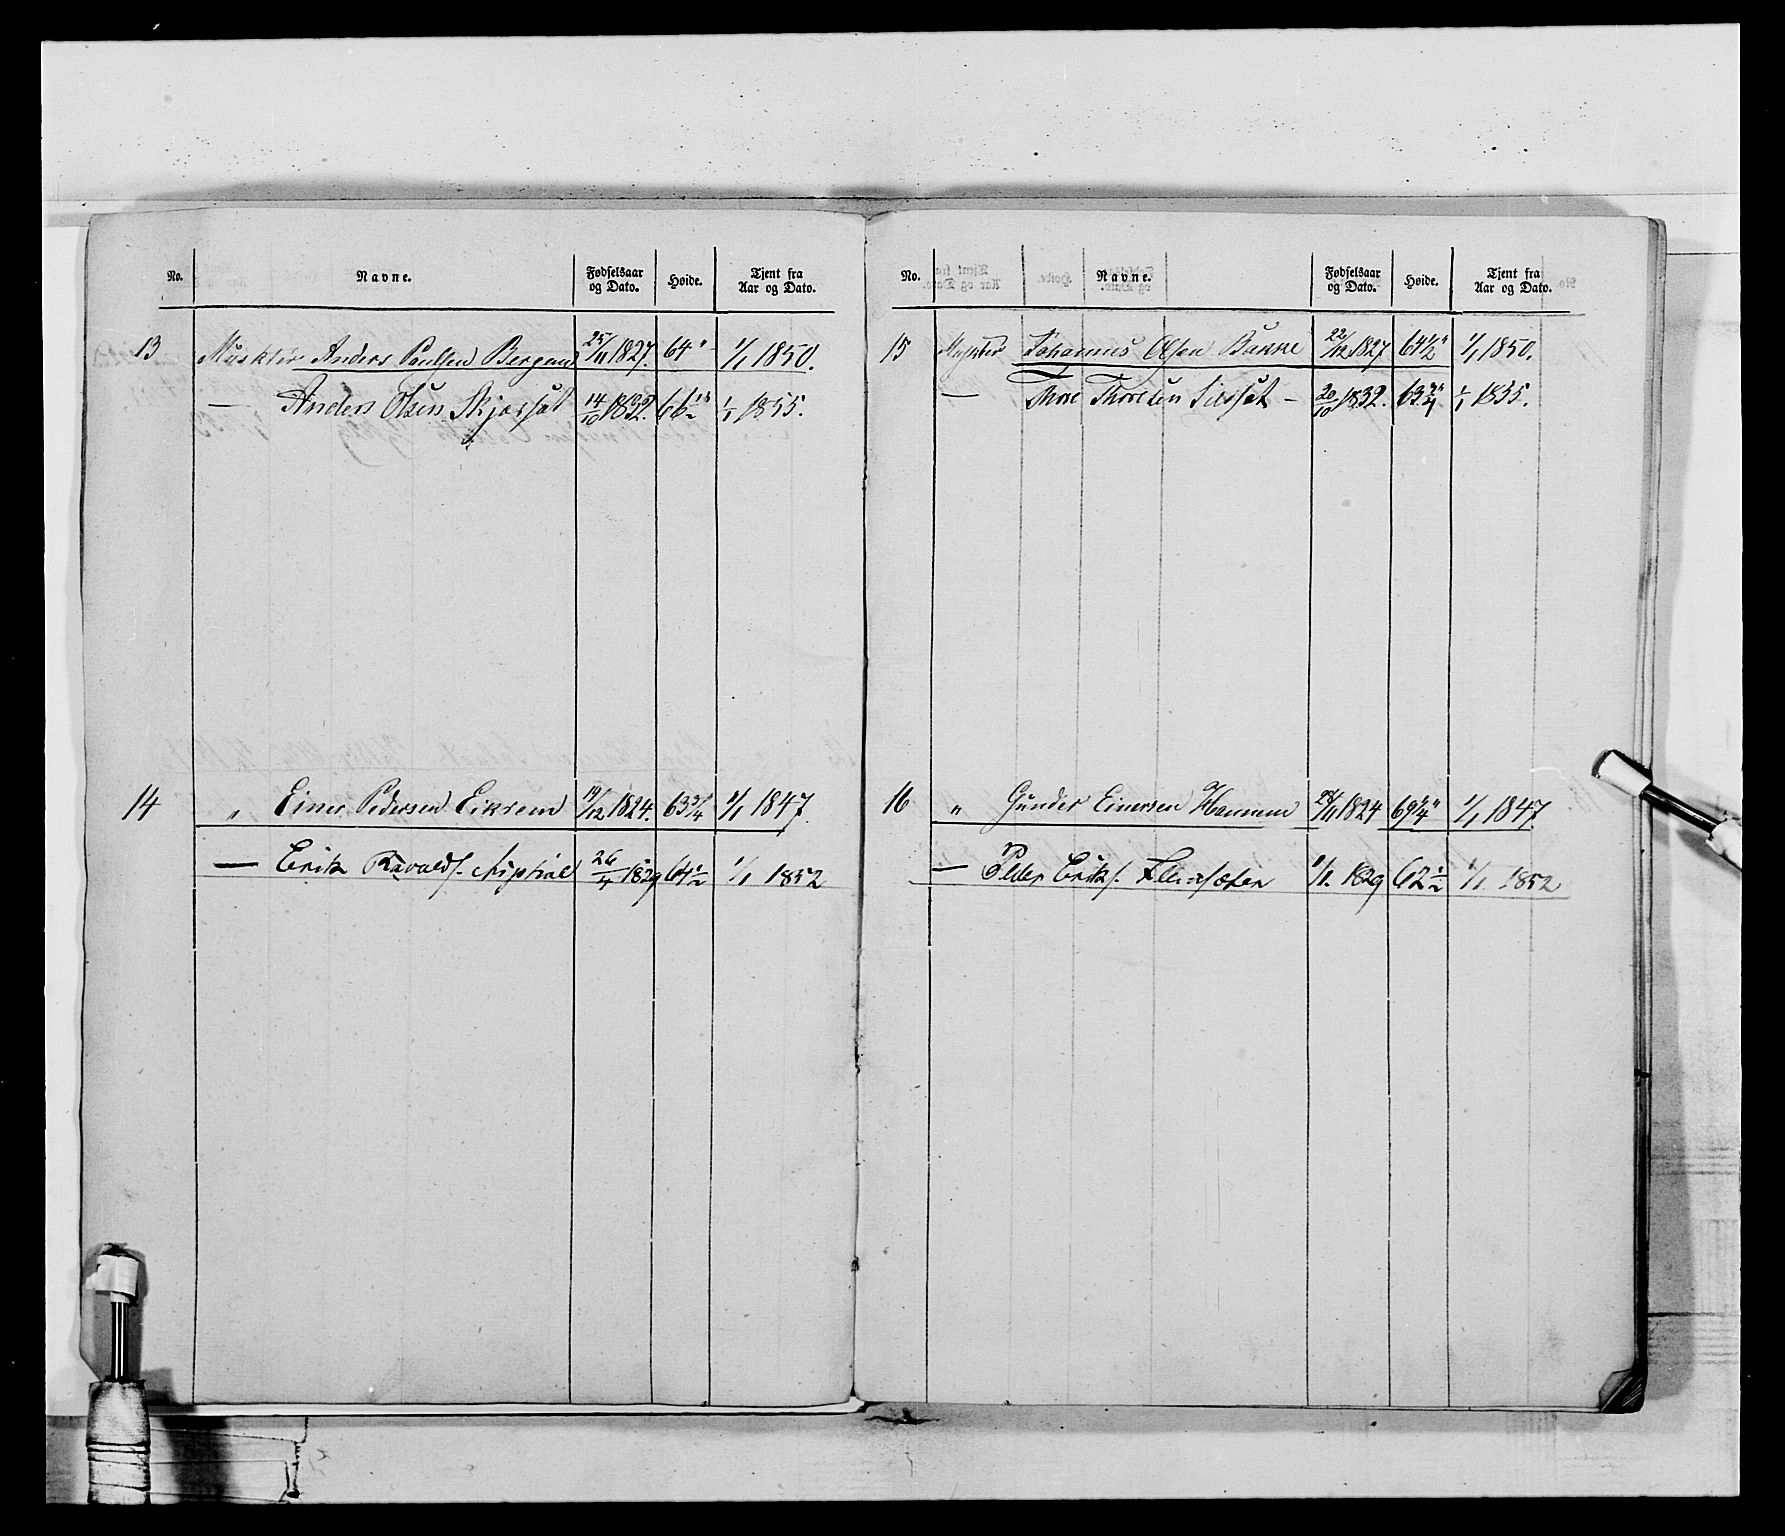 No. Navne. Fødselsaar og Dato. Høide. Tjent fra Aar og Dato.
13 Musktir Anders Paulsen Bergem 25/11 1827. 64" 1/1 1850.
— Anders Olsen Skjørsæt 14/10 1832. 66 1/2" 1/1 1855.
14 " Einer Pedersen Eikrem 19/12 1824. 63 3/4 1/1 1847.
— Erik 26/4 1829 64 1/2 1/1 1852
No. Navne. Fødselsaar og Dato. Høide. Tjent fra Aar og Dato.
15 Johannes Olsen Bakke 22/12 1827 64 1/2" 1/1 1850.
— Thore Thoresen 20/10 1832. 63 3/4" 1/1 1855.
16 " Gunder Einersen Hammen 28/11 1824 69 1/4" 1/1 1847.
— Peder Eriks. 1/1. 1829 62 1/2 1/1. 1852